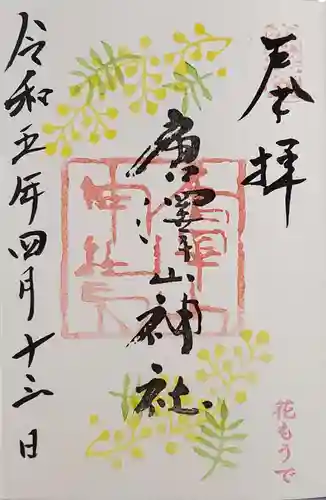 奉拝
廣澤山神社
令和五年四月十三日
花もうで